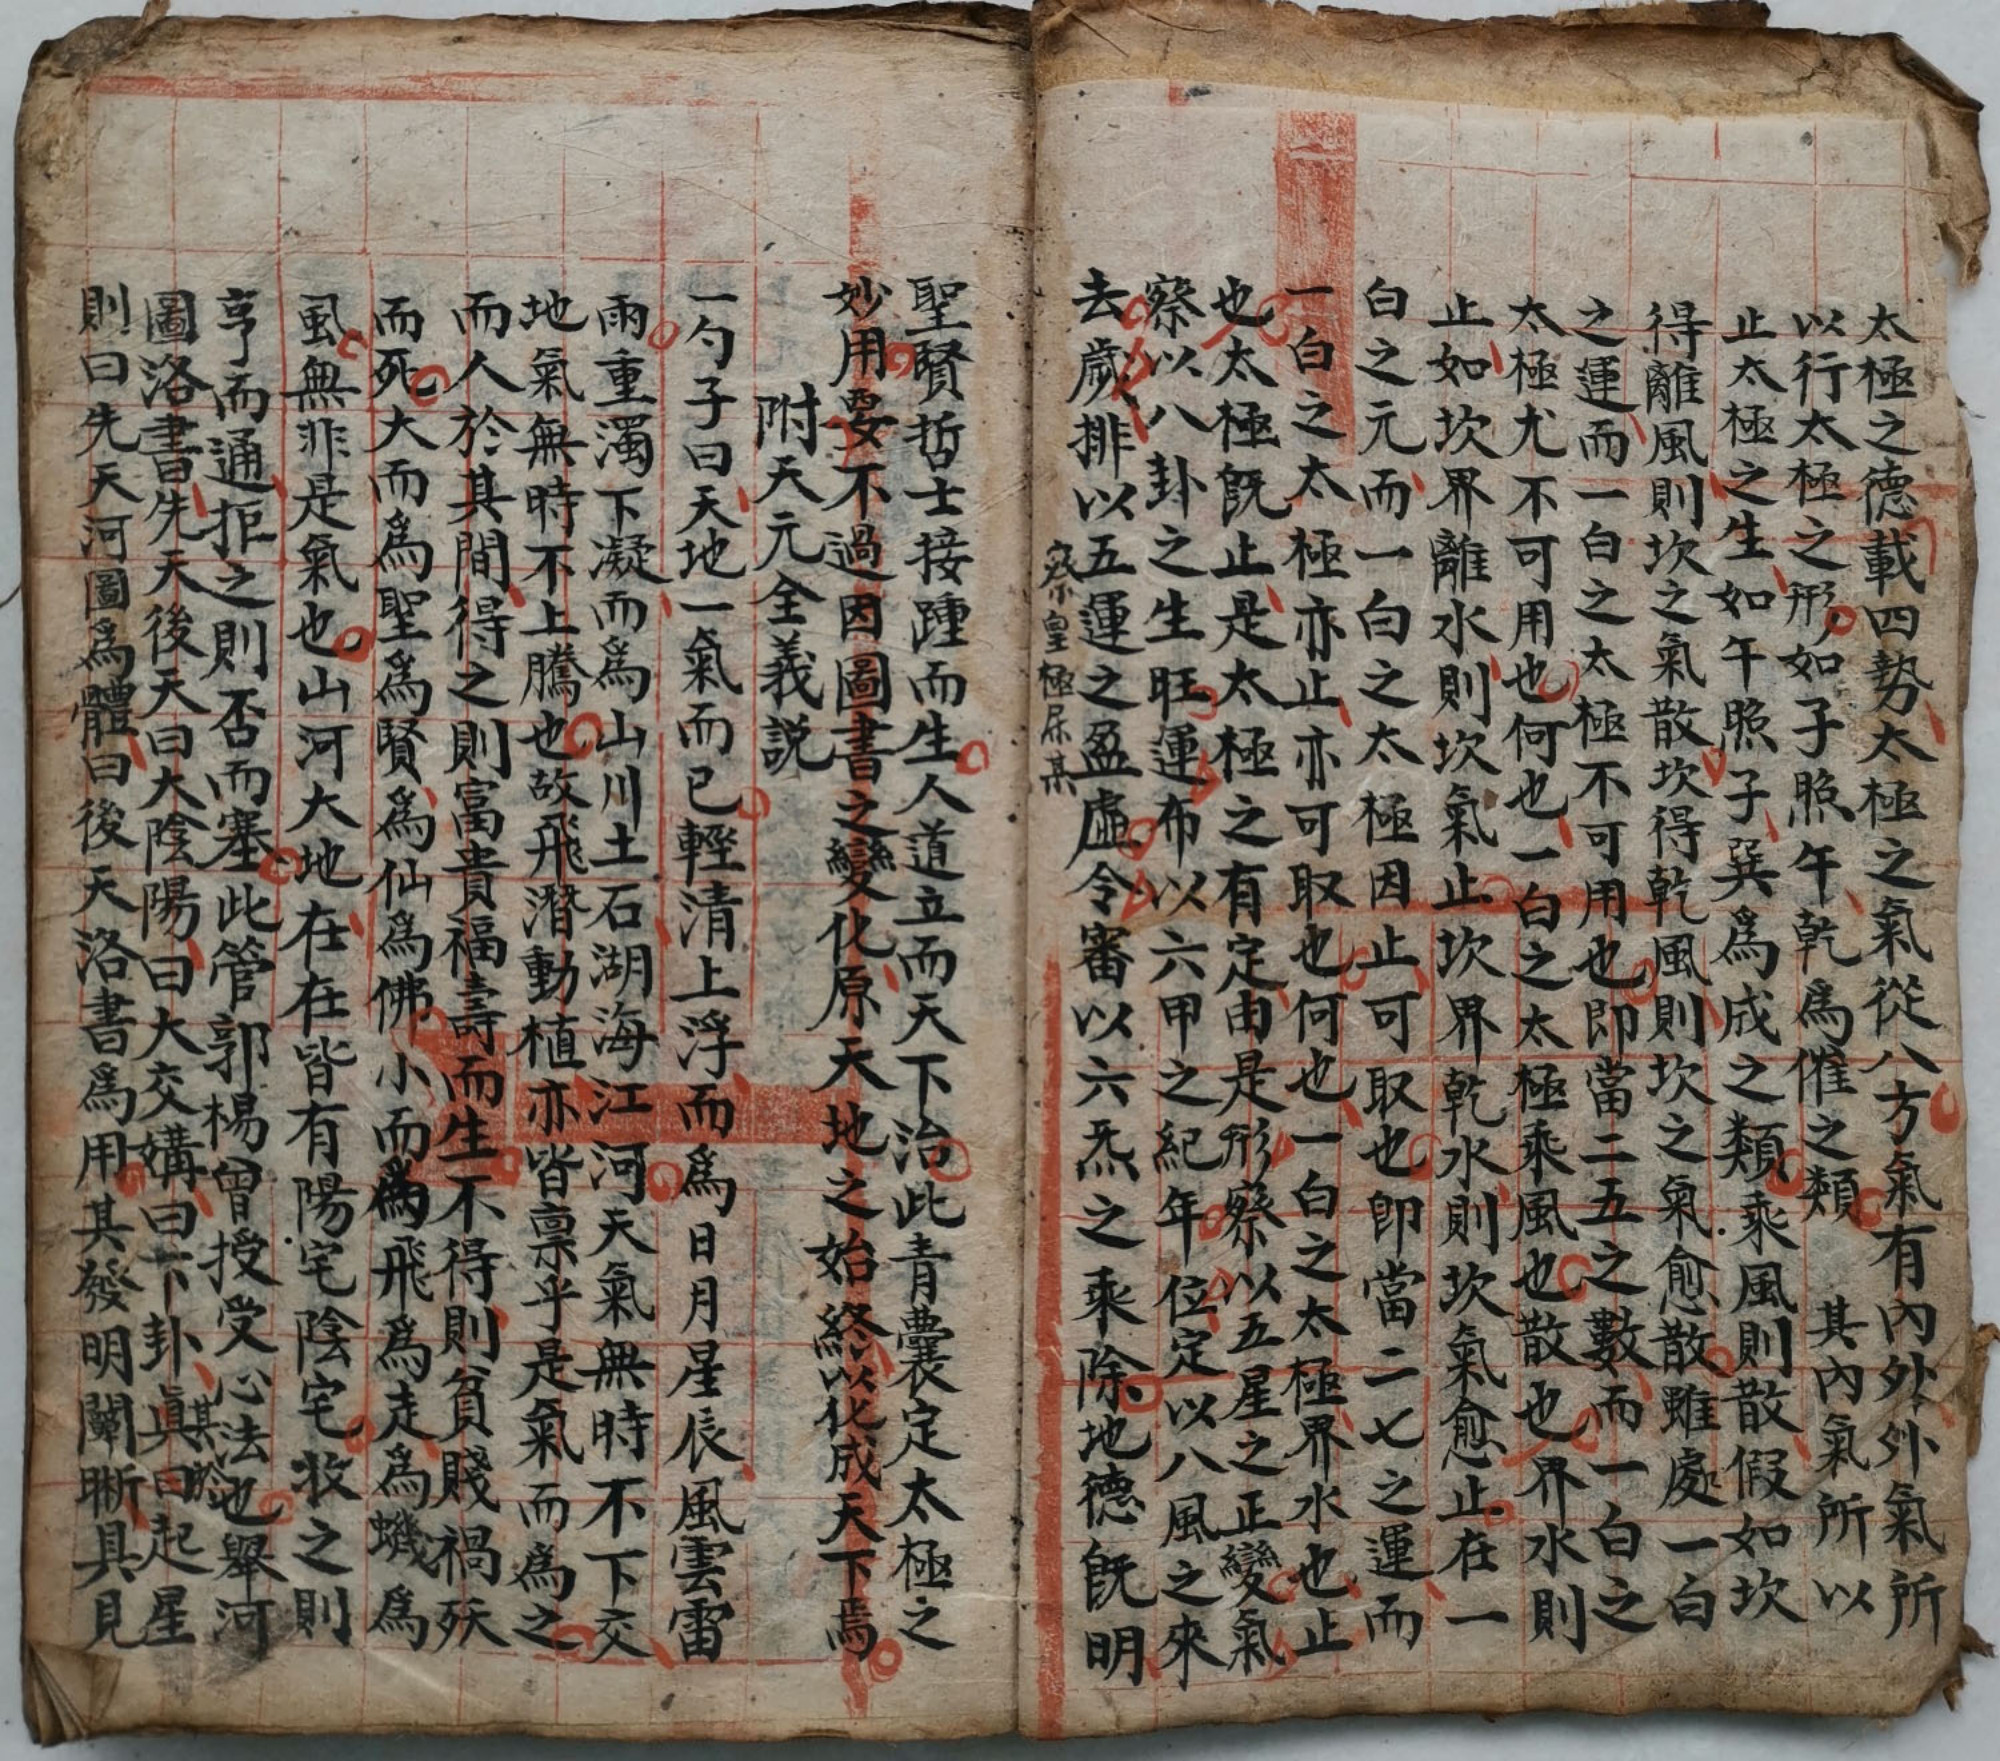 太極之德載四勢太極之氣從八方氣有內外外氣所
以行太極之形如子照午乾爲催之類其內氣所以
止太極之生如午照子巽爲成之類乘風則散假如坎
得離風則坎之氣散坎得乾風則坎之氣愈散雖處一白
之運而一白之太極不可用也即當二五之數而一白之
太極尤不可用也何也一白之太極乘風也散也界水則
止如坎界離水則坎氣止坎界乾水則坎氣愈止在一
白之元而一白之太極因止可取也即當二七之運而
一白之太極亦止亦可取也何也一白之太極界水也止
也太極既止是太極之有定由是形察以五星之正變氣
察以八卦之生旺運布以六甲之紀年位定以八風之來
去歲排以五運之盈虛令審以六炁之乘除地德既明
察皇極
聖賢哲士接踵而生人道立而天下治此青囊定太極之
妙用要不過因圖書之變化原天地之始終以化成天下焉
附天元全義説
一勺子曰天地一氣而已輕清上浮而爲日月星辰風雲雷
雨重濁下凝而爲山川土石湖海江河天氣無時不下交
地氣無時不上騰也故飛潛動植亦皆禀乎是氣而爲之
而人於其間得之則富貴福壽而生不得則貧賤禍殀
而死大而爲聖爲賢爲仙爲佛小而爲飛爲走爲蠛爲
風無非是氣也山河大地在在皆有陽宅陰宅牧之則
亨而通拒之則否而塞此管郭楊曾授受心法也舉河
其於
圖洛書先天後天曰大陰陽曰大交媾曰下卦眞曰起星
則曰先天河圖爲體曰後天洛書爲用其發明闡晰具見